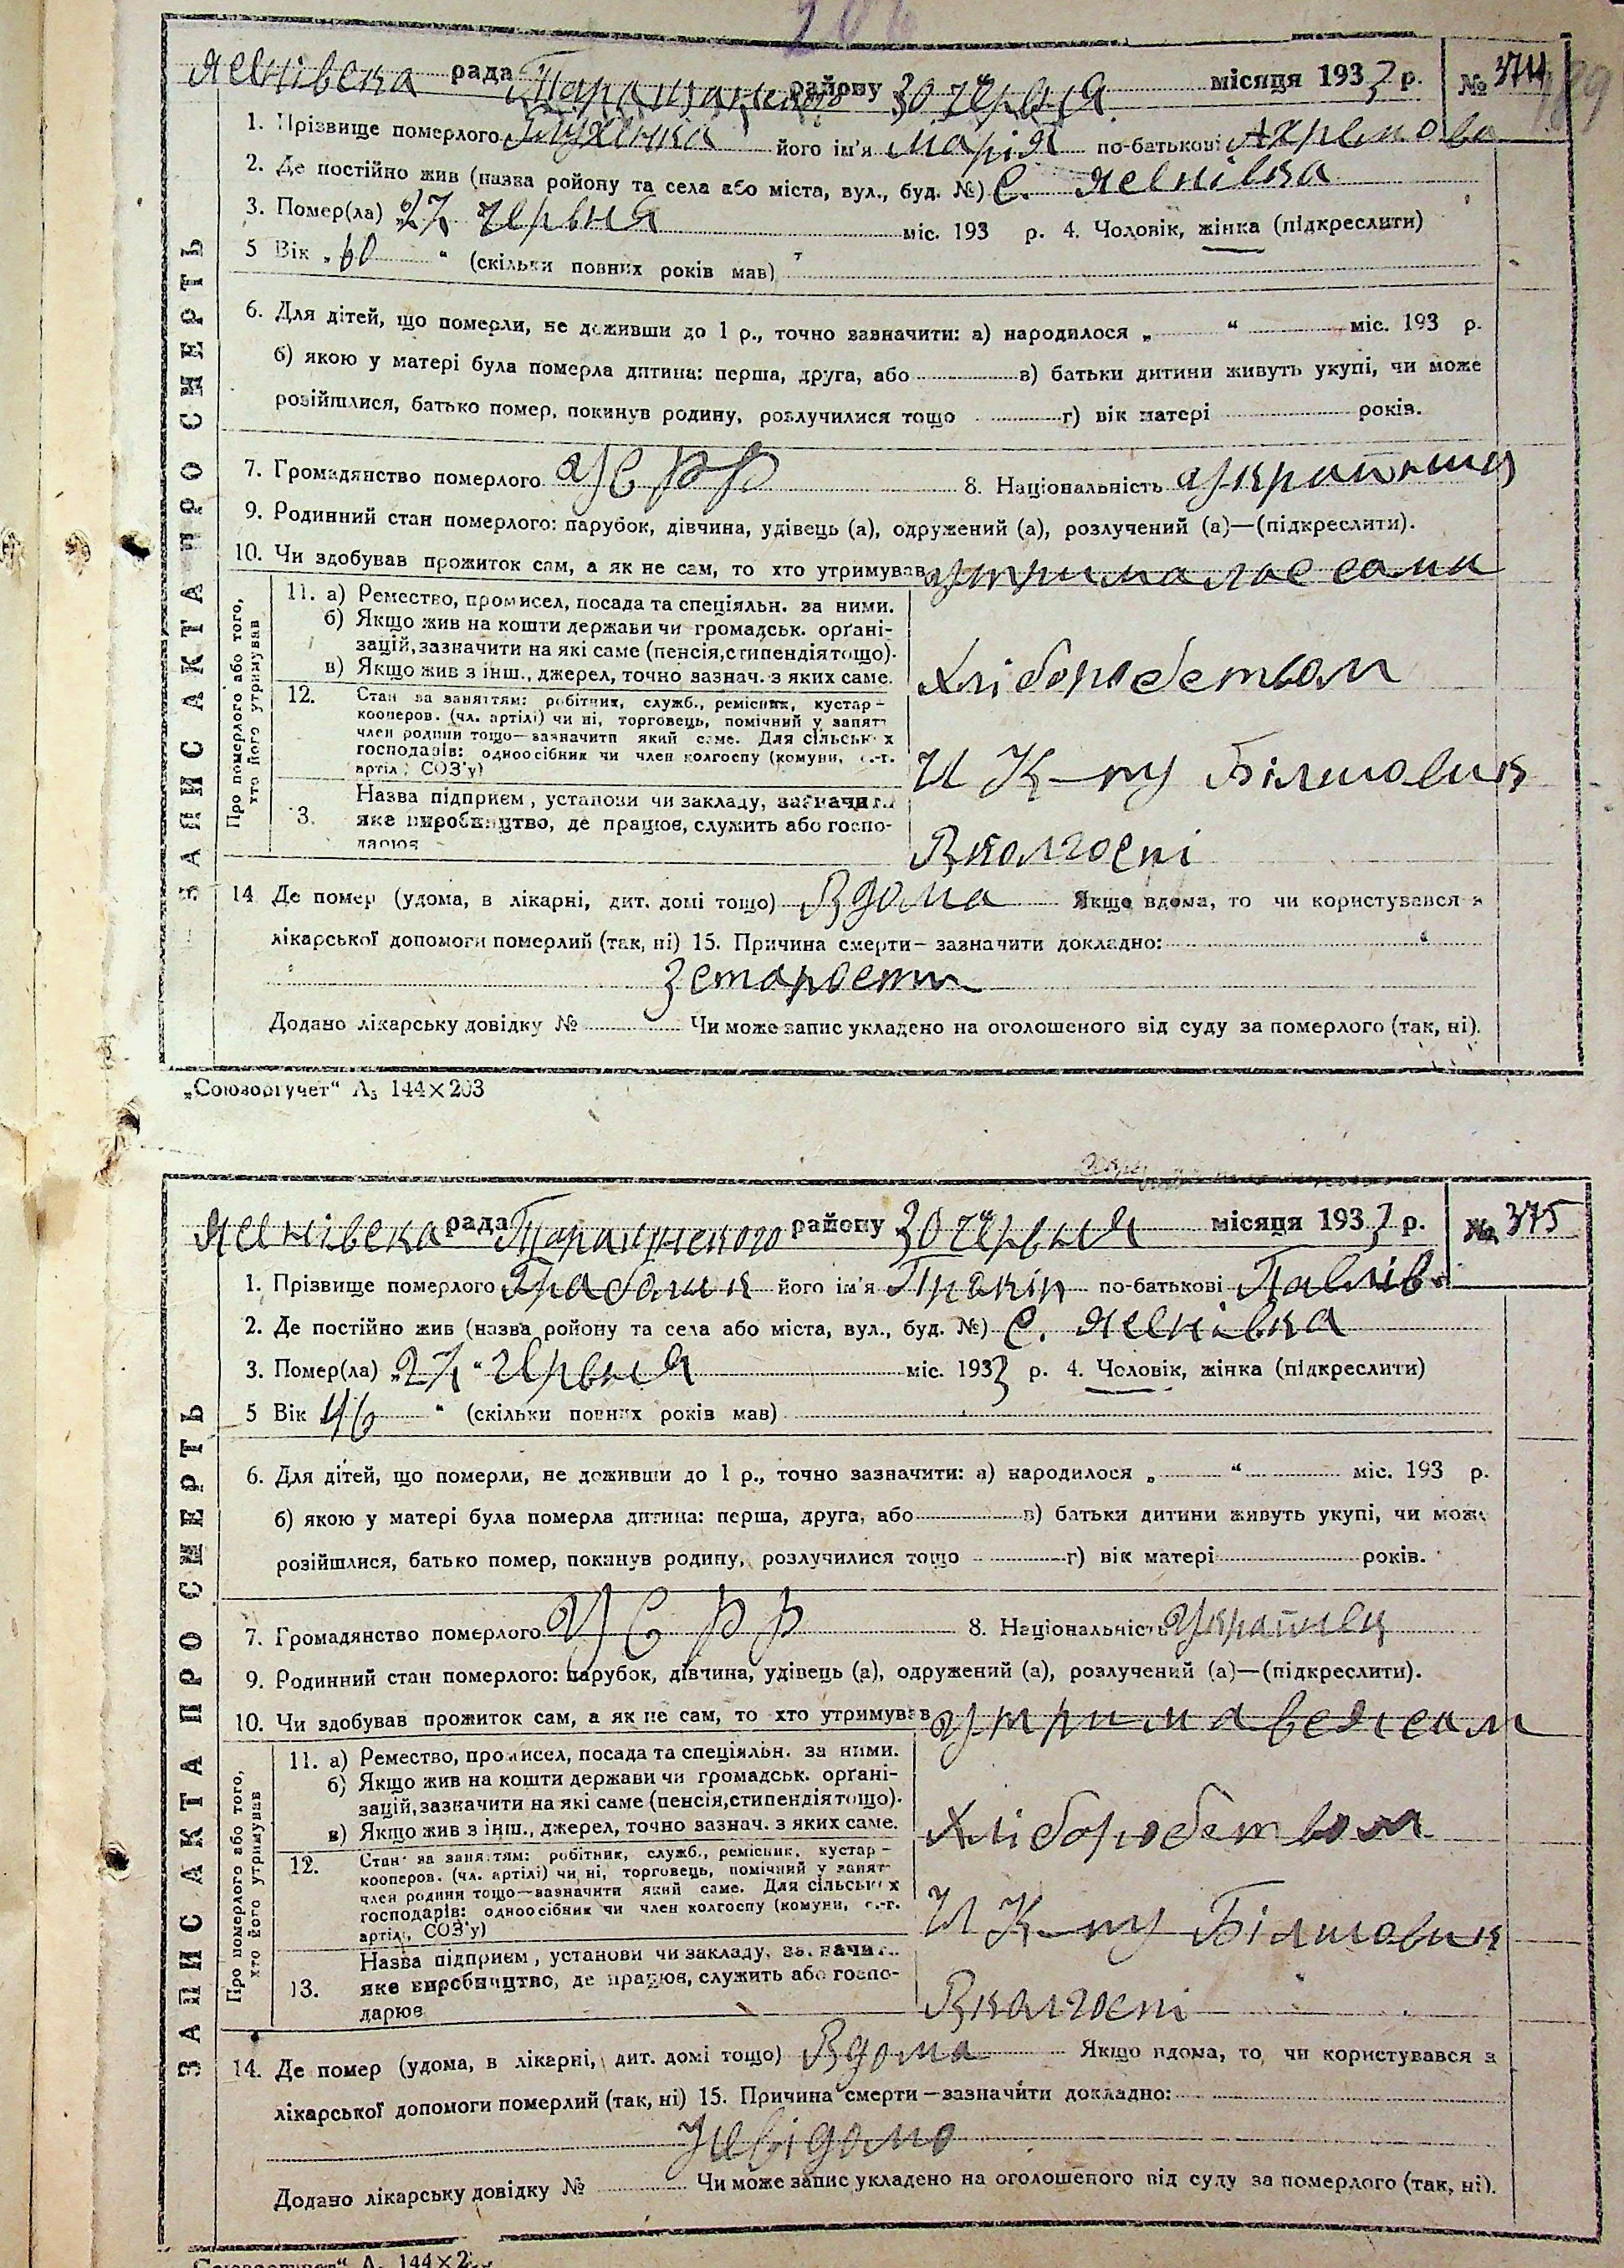 206
189
Яснівська рада Таращанського району 30 червня місяця 1933 р. № 374
ЗАПИС АКТА ПРО СМЕРТЬ
1. Прізвище померлого його ім'я Марія по-батькові
2. Де постійно жив (назва ройону та села або міста, вул., буд. №) С. Яснівка
3. Помер(ла) „27 червня міс. 193 р. 4. Чоловік, жінка (підкреслити)
5 Вік „60 “ (скільки повних років мав)
6. Для дітей, що померли, не доживши до 1 р., точно зазначити: а) народилося „ “ міс. 193 р.
б) якою у матері була померла дитина: перша, друга, або в) батьки дитини живуть укупі, чи може
розійшлися, батько помер, покинув родину, розлучилися тощо г) вік матері років.
7. Громадянство померлого УСРР 8. Національність
9. Родинний стан померлого: парубок, дівчина, удівець (а), одружений (а), розлучений (а)—(підкреслити).
10. Чи здобував прожиток сам, а як не сам, то хто утримував
Про померлого або того, хто його утримував
11. а) Ремество, промисел, посада та спеціяльн. за ними.
б) Якщо жив на кошти держави чи громадськ. орґані-
зацій, зазначити на які саме (пенсія, стипендія тощо).
в) Якщо жив з інш., джерел, точно зазнач. з яких саме.
Хліборобством
12. Стан за заняттям: робітник, служб., ремісник, кустар –
кооперов. (чл. артілі) чи ні, торговець, помічний у занят
член родини тощо—зазначити який саме. Для сільськ х
господарів: одноосібник чи член колгоспу (комуни, с.-г.
артілі, СОЗ'у)
Ч К-пу Більшовик
13. Назва підприєм, установи чи закладу, зазначити
яке виробництво, де працює, служить або госпо-
дарює
В колгоспі
14 Де помер (удома, в лікарні, дит. домі тощо) Вдома Якщо вдома, то чи користувався з
лікарської допомоги померлий (так, ні) 15. Причина смерти – зазначити докладно:
З старости
Додано лікарську довідку № Чи може запис укладено на оголошеного від суду за померлого (так, ні).
„Союзоргучет“ А₅ 144×203
Яснівська рада Таращанського району 30 червня місяця 1933 р. № 375
ЗАПИС АКТА ПРО СМЕРТЬ
1. Прізвище померлого його ім'я по-батькові Павлів
2. Де постійно жив (назва ройону та села або міста, вул., буд. №) С. Яснівка
3. Помер(ла) „27 “ червня міс. 1933 р. 4. Чоловік, жінка (підкреслити)
5 Вік 46 “ (скільки повних років мав)
6. Для дітей, що померли, не доживши до 1 р., точно зазначити: а) народилося „ “ міс. 193 р.
б) якою у матері була померла дитина: перша, друга, або в) батьки дитини живуть укупі, чи може
розійшлися, батько помер, покинув родину, розлучилися тощо г) вік матері років.
7. Громадянство померлого УСРР 8. Національність Українець
9. Родинний стан померлого: парубок, дівчина, удівець (а), одружений (а), розлучений (а)—(підкреслити).
10. Чи здобував прожиток сам, а як не сам, то хто утримував утримавсяс сам
Про померлого або того, хто його утримував
11. а) Ремество, промисел, посада та спеціяльн. за ними.
б) Якщо жив на кошти держави чи громадськ. орґані-
зацій, зазначити на які саме (пенсія, стипендія тощо).
в) Якщо жив з інш., джерел, точно зазнач. з яких саме.
Хліборобством
12. Стан за заняттям: робітник, служб., ремісник, кустар –
кооперов. (чл. артілі) чи ні, торговець, помічний у занят
член родини тощо—зазначити який саме. Для сільськ х
господарів: одноосібник чи член колгоспу (комуни, с.-г.
артілі, СОЗ'у)
Ч К-пу Більшовик
13. Назва підприєм, установи чи закладу, зазначити
яке виробництво, де працює, служить або госпо-
дарює
В колгоспі
14. Де помер (удома, в лікарні, дит. домі тощо) Вдома Якщо вдома, то чи користувався з
лікарської допомоги померлий (так, ні) 15. Причина смерти – зазначити докладно:
Невідомо
Додано лікарську довідку № Чи може запис укладено на оголошеного від суду за померлого (так, ні).
„Союзоргучет“ А₅ 144×2